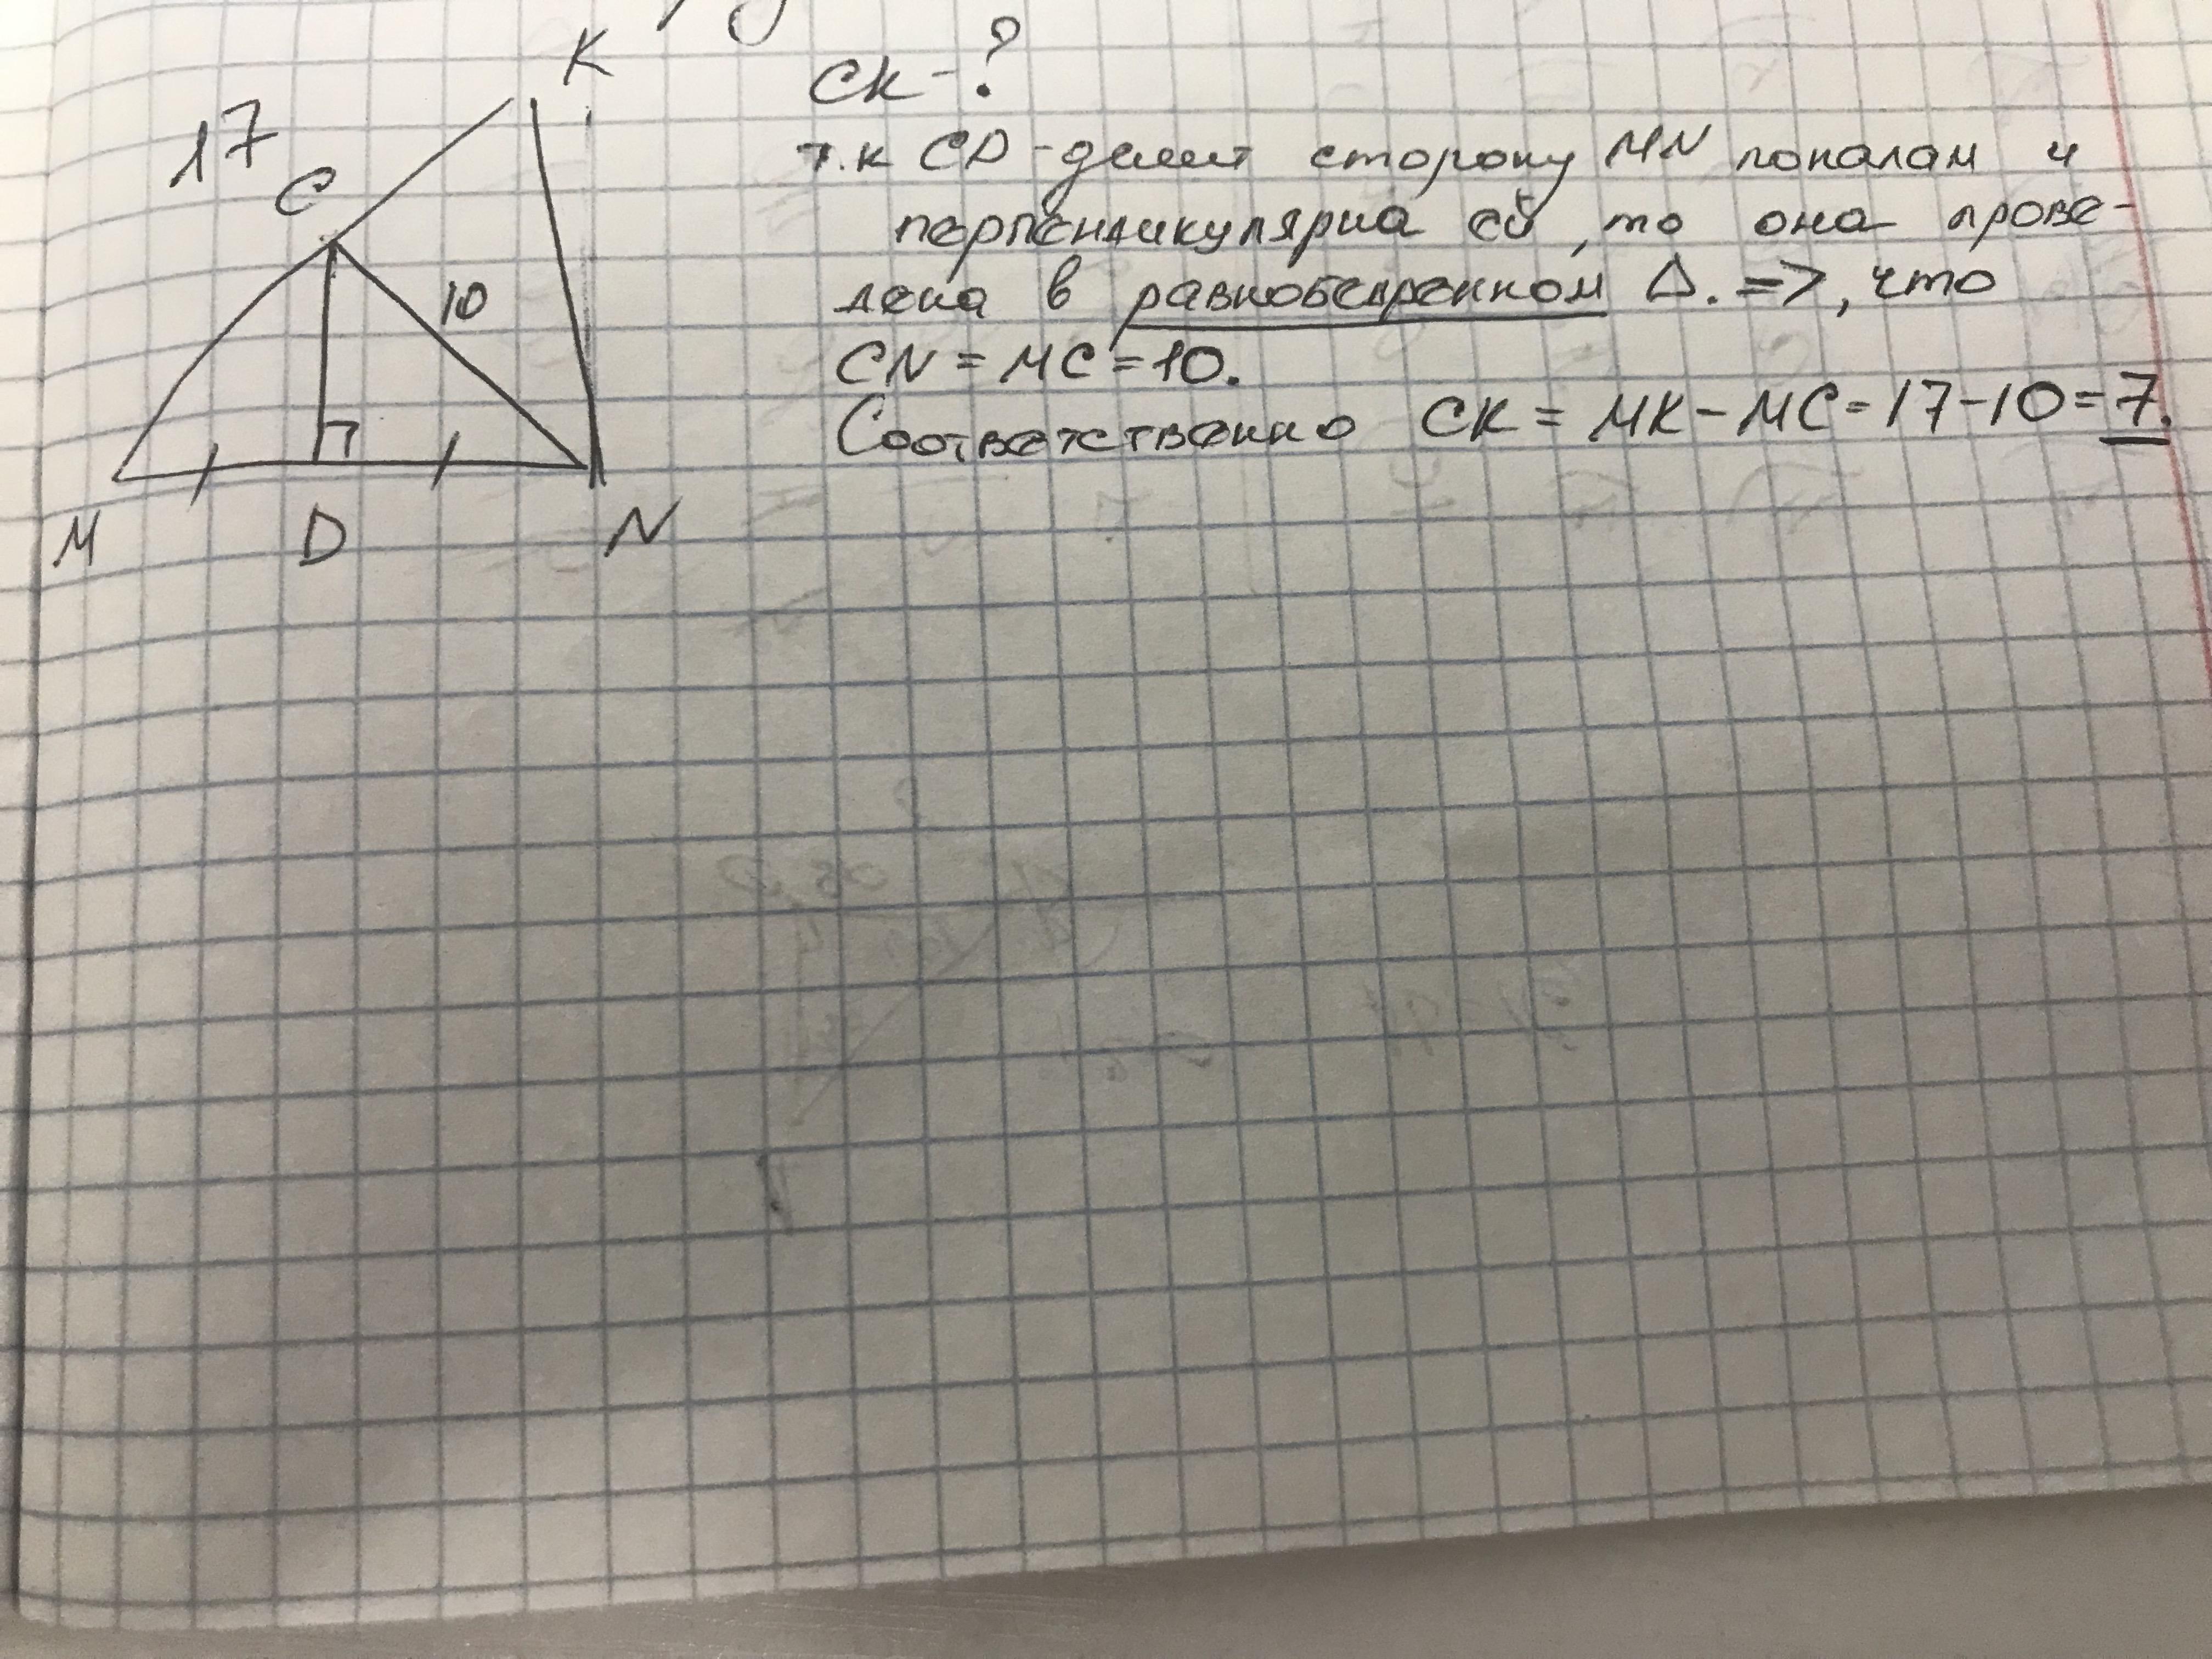 K
CK-?
17
C
т.к CD-делит сторону MN пополам и
перпендикулярна ей, то она прове-
10
дена в равнобедренном Δ. =>, что
CN = MC = 10.
Соответственно CK = MK - MC = 17-10=7.
M D N